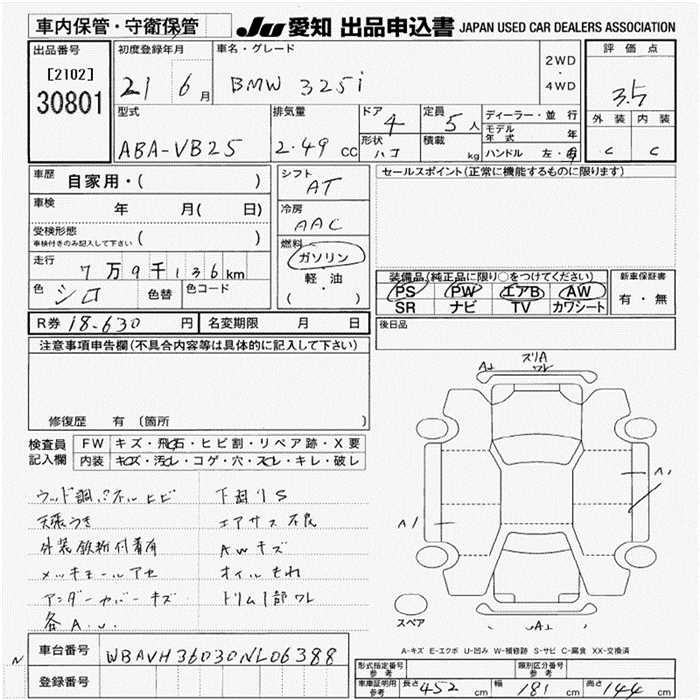 車内保管・守衛保管
JU 愛知 出品申込書 JAPAN USED CAR DEALERS ASSOCIATION
出品番号
[2102]
30801
初度登録年月
21 6月
車名・グレード
BMW 325i
2WD
・
4WD
評価点
3.5
外装 内装
C C
型式
ABA-VB25
排気量
2.49 cc
ドア
4
形状
ハコ
定員
5人
積載
kg
ディーラー・並行
モデル年式 年
ハンドル 左・右
車歴
自家用・( )
車検
年 月( 日)
受検形態
車検付きのみ記入して下さい ( )
走行
7万9千136km
色
シロ
色替
色コード
シフト
AT
冷房
AAC
燃料
ガソリン
軽・油
( )
セールスポイント(正常に機能するものに限ります)
装備品(純正品に限り○をつけてください)
PS PW エアB AW
SR ナビ TV カワシート
新車保証書
有・無
R券 18-630 円
名変期限 月 日
後日品
注意事項申告欄(不具合内容等は具体的に記入して下さい)
修復歴 有 (箇所 )
検査員記入欄
FW キズ・飛石・ヒビ割・リペア跡・X要
内装 キズ・汚レ・コゲ・穴・スレ・キレ・破レ
ウッド調パネルヒビ
下廻りS
天張うき
エアサス不良
外装鉄粉付着有
AWキズ
メッキモールアセ
オイルもれ
アンダーカバーキズ
トリム1部ワレ
各A.U.
A1
スリA
ワレ
A1
A1
A1
スペア
A-キズ E-エクボ U-凹み W-補修跡 S-サビ C-腐食 XX-交換済
N
車台番号
WBAVH36030NL06388
登録番号
形式指定番号
参考
類別区分番号
参考
車庫証明用
参考
長さ 452 cm
幅 181 cm
高さ 144 cm